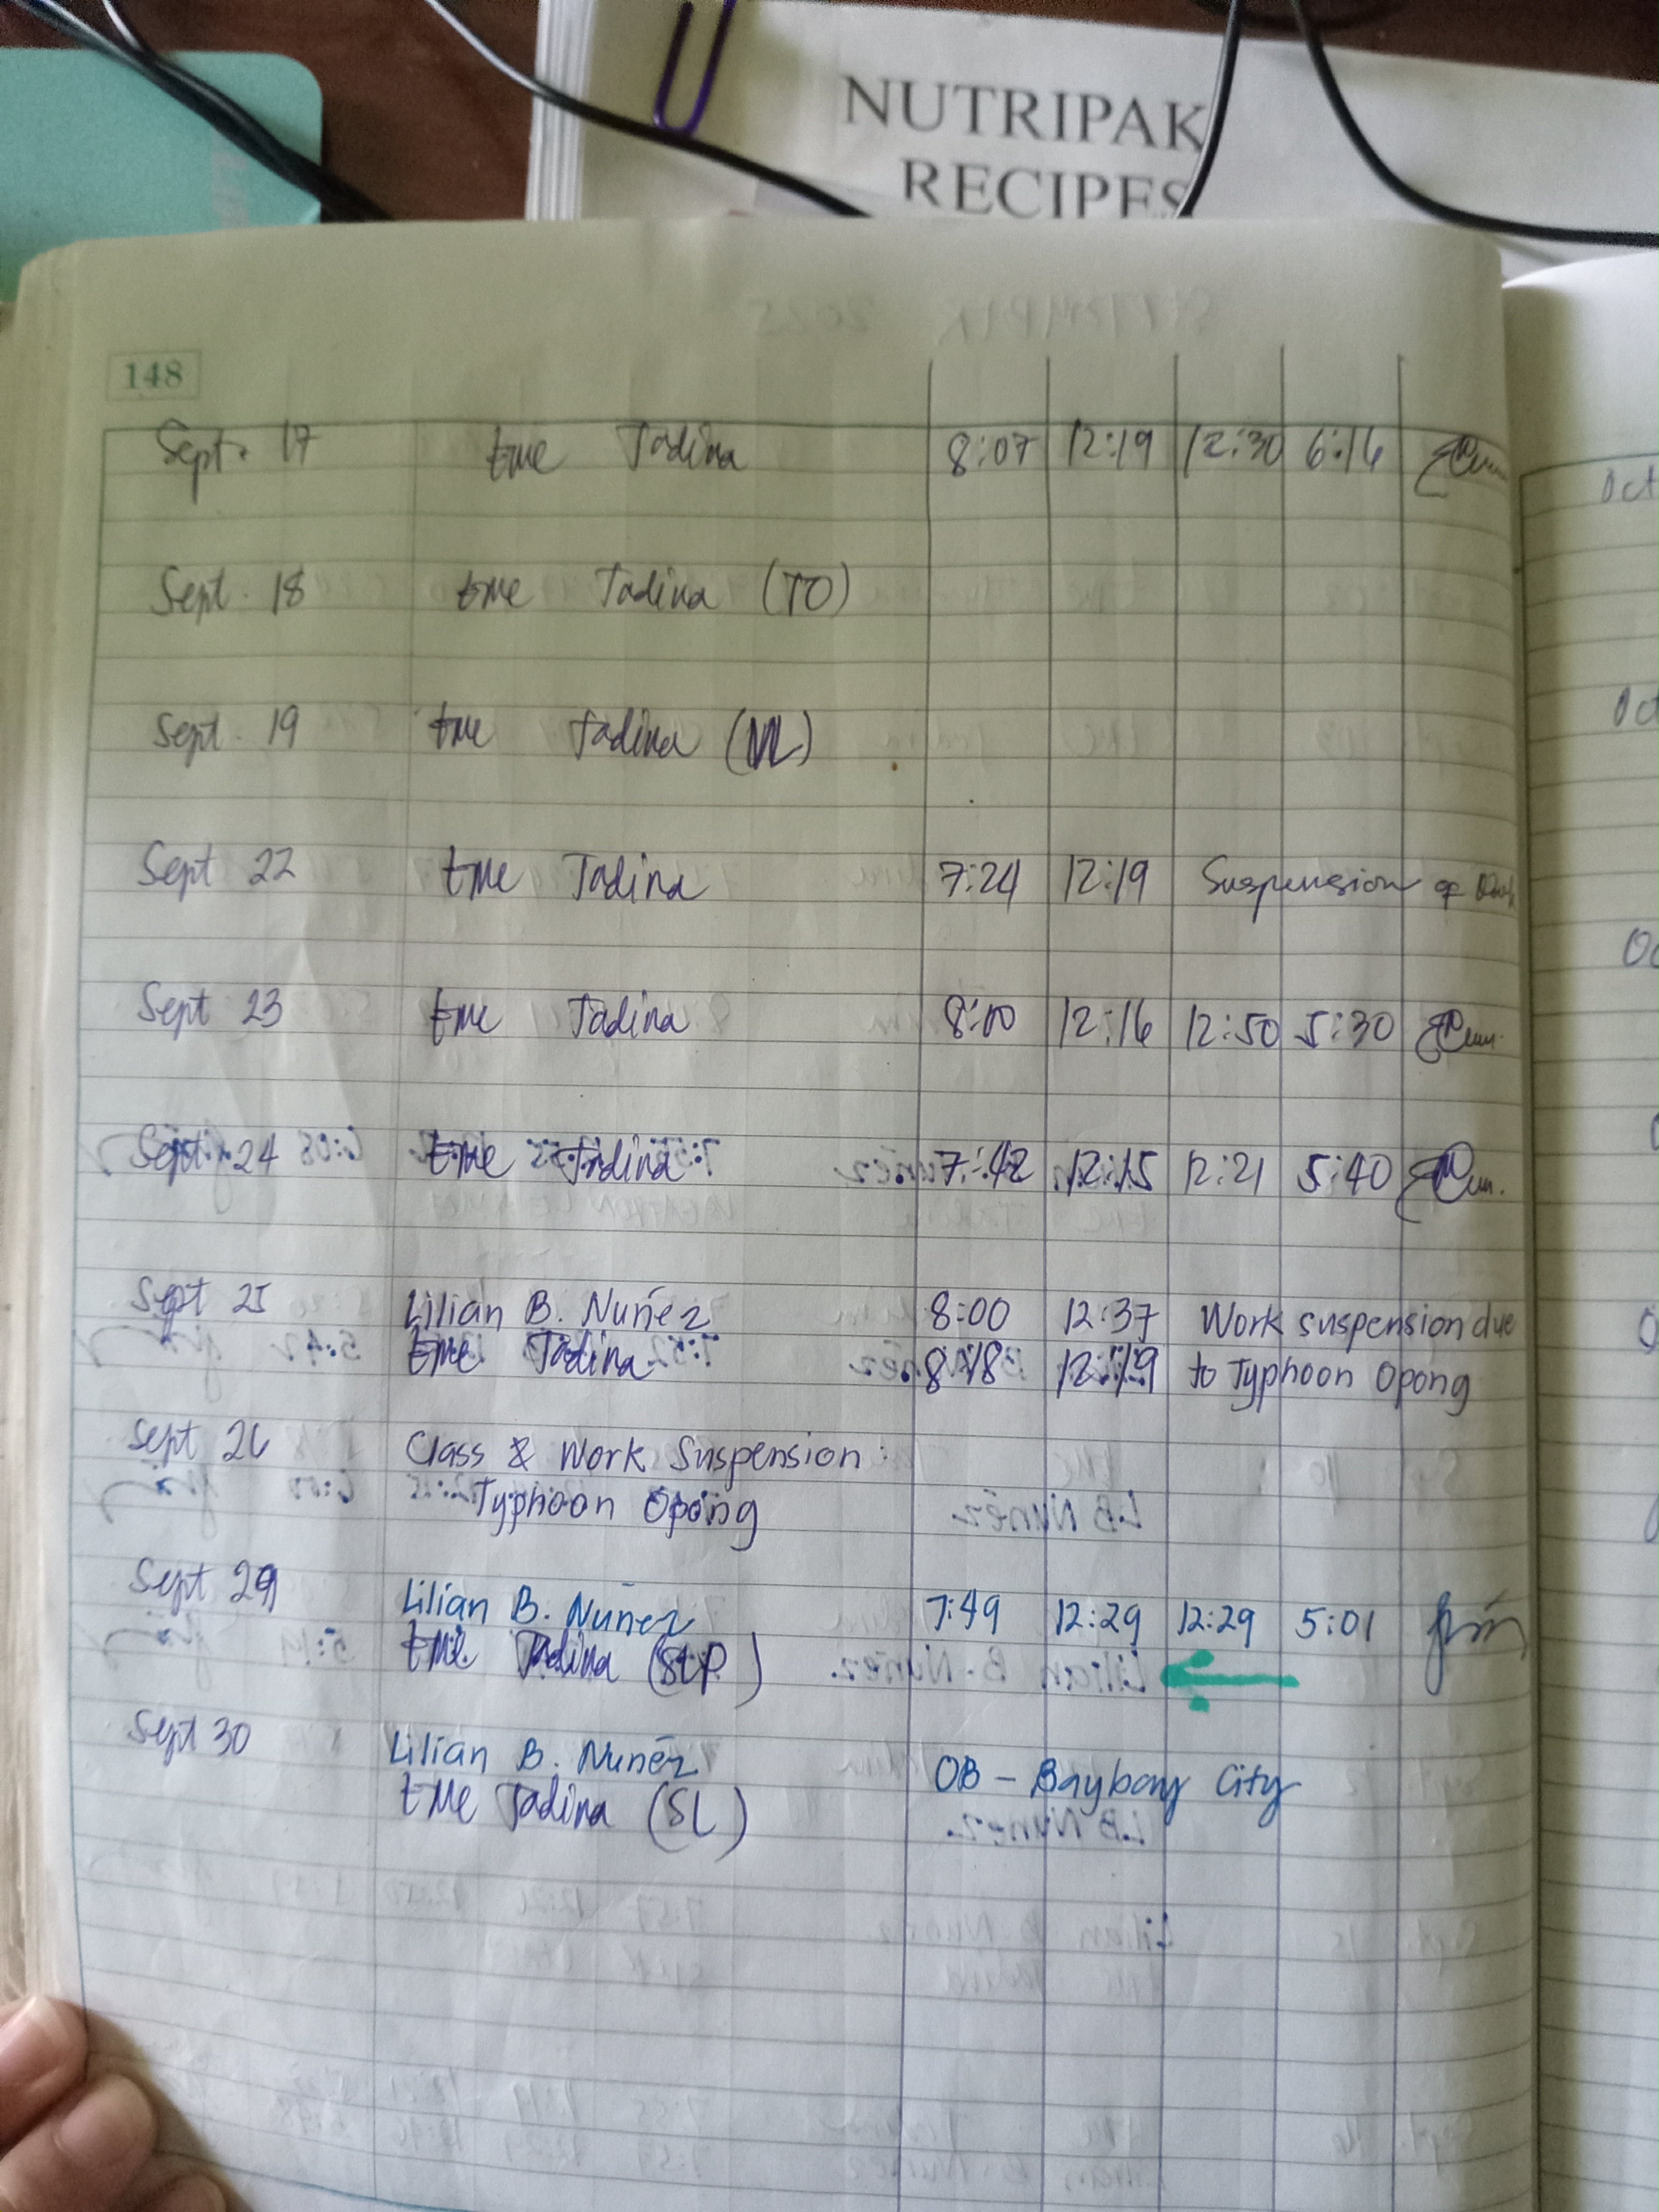 NUTRIPAK
RECIPES
148
Sept. 17 EMC Tadina 8:07 12:19 12:30 6:16
Sept. 18 EMC Tadina (TO)
Sept. 19 EMC Tadina (VL)
Sept 22 EMC Tadina 7:24 12:19 Suspension of Work
Sept 23 EMC Tadina 8:00 12:16 12:50 5:30
Sept 24 EMC Tadina 7:42 12:15 12:21 5:40
Sept 25 Lilian B. Nuñez 8:00 12:37 Work suspension due
EMC Tadina 8:18 12:19 to Typhoon Opong
Sept 26 Class & Work Suspension:
Typhoon Opong
Sept 29 Lilian B. Nuñez 7:49 12:29 12:29 5:01
EMC Tadina (SLP)
Sept 30 Lilian B. Nuñez OB - Baybay City
EMC Tadina (SL)
Oct
Oct